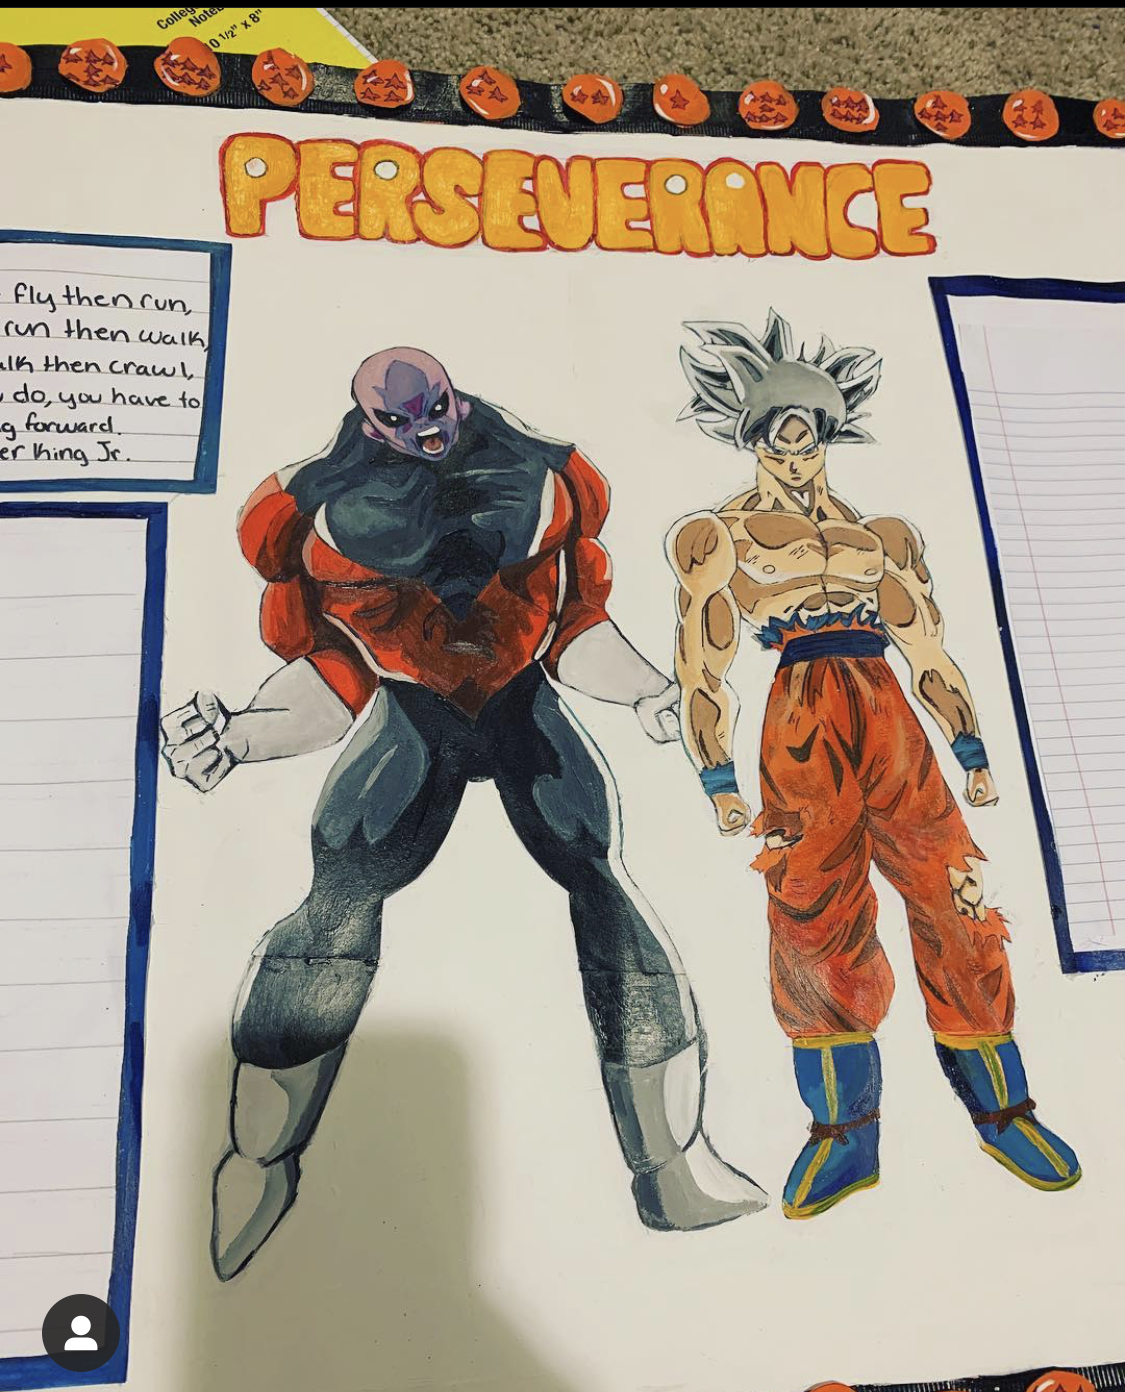 Colleg
Noteb
0 1/2" x 8"
PERSEVERANCE
fly then run,
run then walk,
alk then crawl,
do, you have to
g forward.
er King Jr.